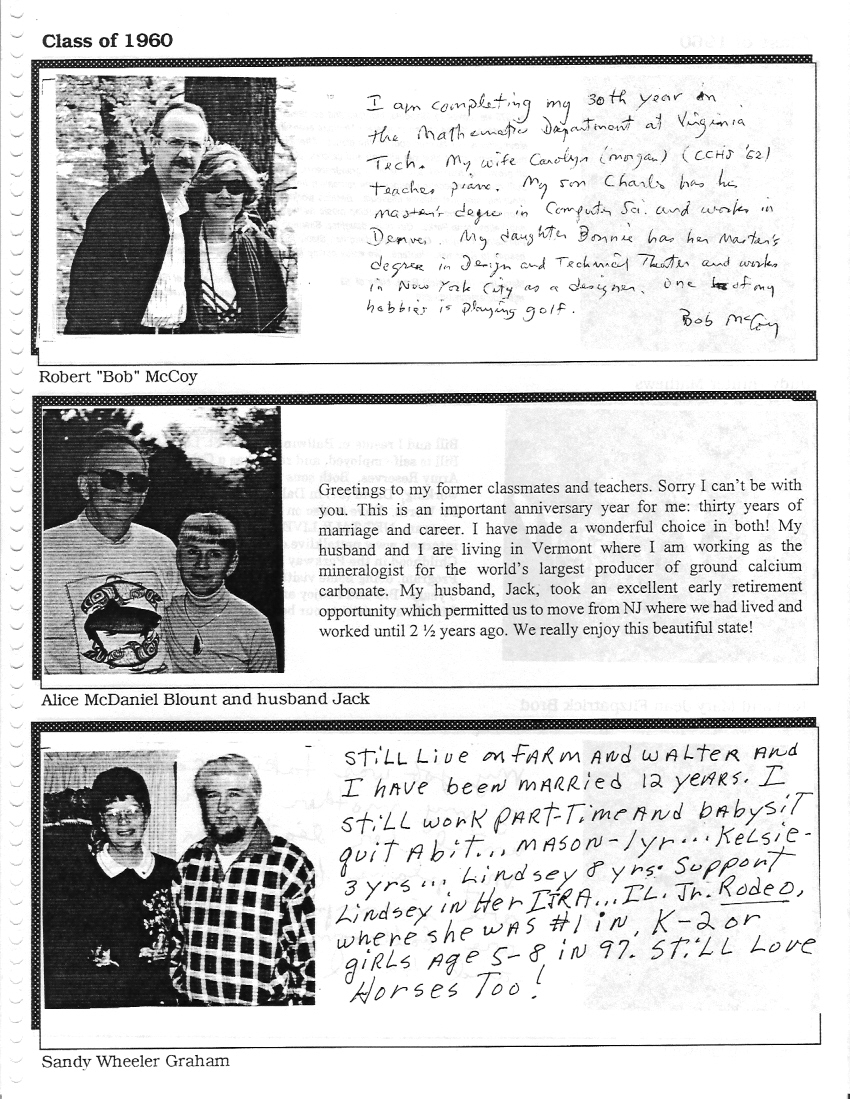 Class of 1960
I am completing my 30th year in
the Mathematics Department at Virginia
Tech. My wife Carolyn (Morgan) (CCHS '62)
teaches piano. My son Charles has his
master's degree in Computer Sci. and works in
Denver. My daughter Bonnie has her Master's
degree in Design and Technical Theater and works
in New York City as a designer. One of my
hobbies is playing golf.
Bob McCoy
Robert "Bob" McCoy
Greetings to my former classmates and teachers. Sorry I can't be with
you. This is an important anniversary year for me: thirty years of
marriage and career. I have made a wonderful choice in both! My
husband and I are living in Vermont where I am working as the
mineralogist for the world's largest producer of ground calcium
carbonate. My husband, Jack, took an excellent early retirement
opportunity which permitted us to move from NJ where we had lived and
worked until 2 ½ years ago. We really enjoy this beautiful state!
Alice McDaniel Blount and husband Jack
STiLL Live on FARM AND WALTER AND
I HAVE been MARRIED 12 YEARS. I
STiLL work PART-Time AND bAbysiT
quiT A biT... MASON-1yr... KeLsie-
3 yrs... Lindsey 8 yrs. Support
Lindsey in Her IJRA... IL. Jr. Rodeo,
where she WAS #1 in, K-2 or
giRLs Age 5-8 iN 97. STiLL Love
Horses Too!
Sandy Wheeler Graham